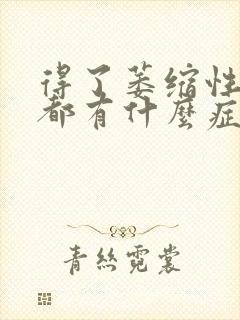 得了萎缩性
都有什麼症
青絲霓裳